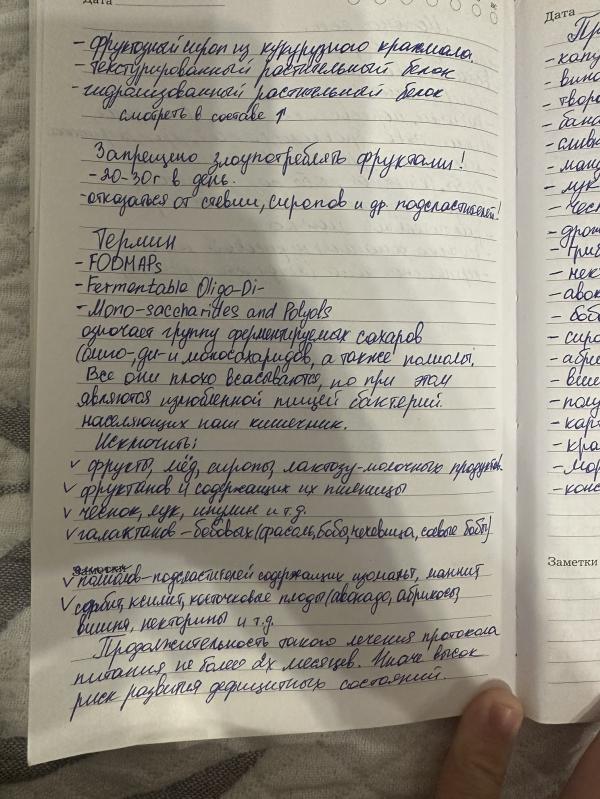 Дата
- фруктозный сироп из кукурузного крахмала.
- текстурированный растительный белок
- гидролизованный растительный белок
смотреть в составе ↑
Запрещено злоупотреблять фруктами!
- 20-30г в день.
- отказаться от стевии, сиропов и др. подсластителей!
Термин
- FODMAPs
- Fermentable Oligo-Di-
- Mono-saccharides and Polyols
означает группу ферментируемых сахаров
(олиго-ди- и моносахаридов, а также полиолы.
Все они плохо всасываются, но при этом
являются излюбленной пищей бактерий
населяющих наш кишечник.
Исключить:
✓ фрукты, мёд, сиропы, лактозу-молочного продуктов.
✓ фруктанов и содержащих их пшеницы
✓ чеснок, лук, инулин и т.д.
✓ галактанов - бобовых (фасоль, бобы, чечевица, соевые бобы)
Заметки
✓ полиолов - подсластителей содержащих изомальт, маннит
✓ сорбит, ксилит, косточковые плоды (авокадо, абрикосы,
вишня, нектарины и т.д.
Продолжительность такого лечения протокола
питания не более 2х месяцев. Иначе высок
риск развития дефицитных состояний.
Дата
- капу
- вино
- твор
- бана
- слив
- лук
- чесн
- дрож
- нек
- авок
- бобо
- сиро
- абри
- виш
- полу
- карт
- кра
- мор
- конс
Заметки